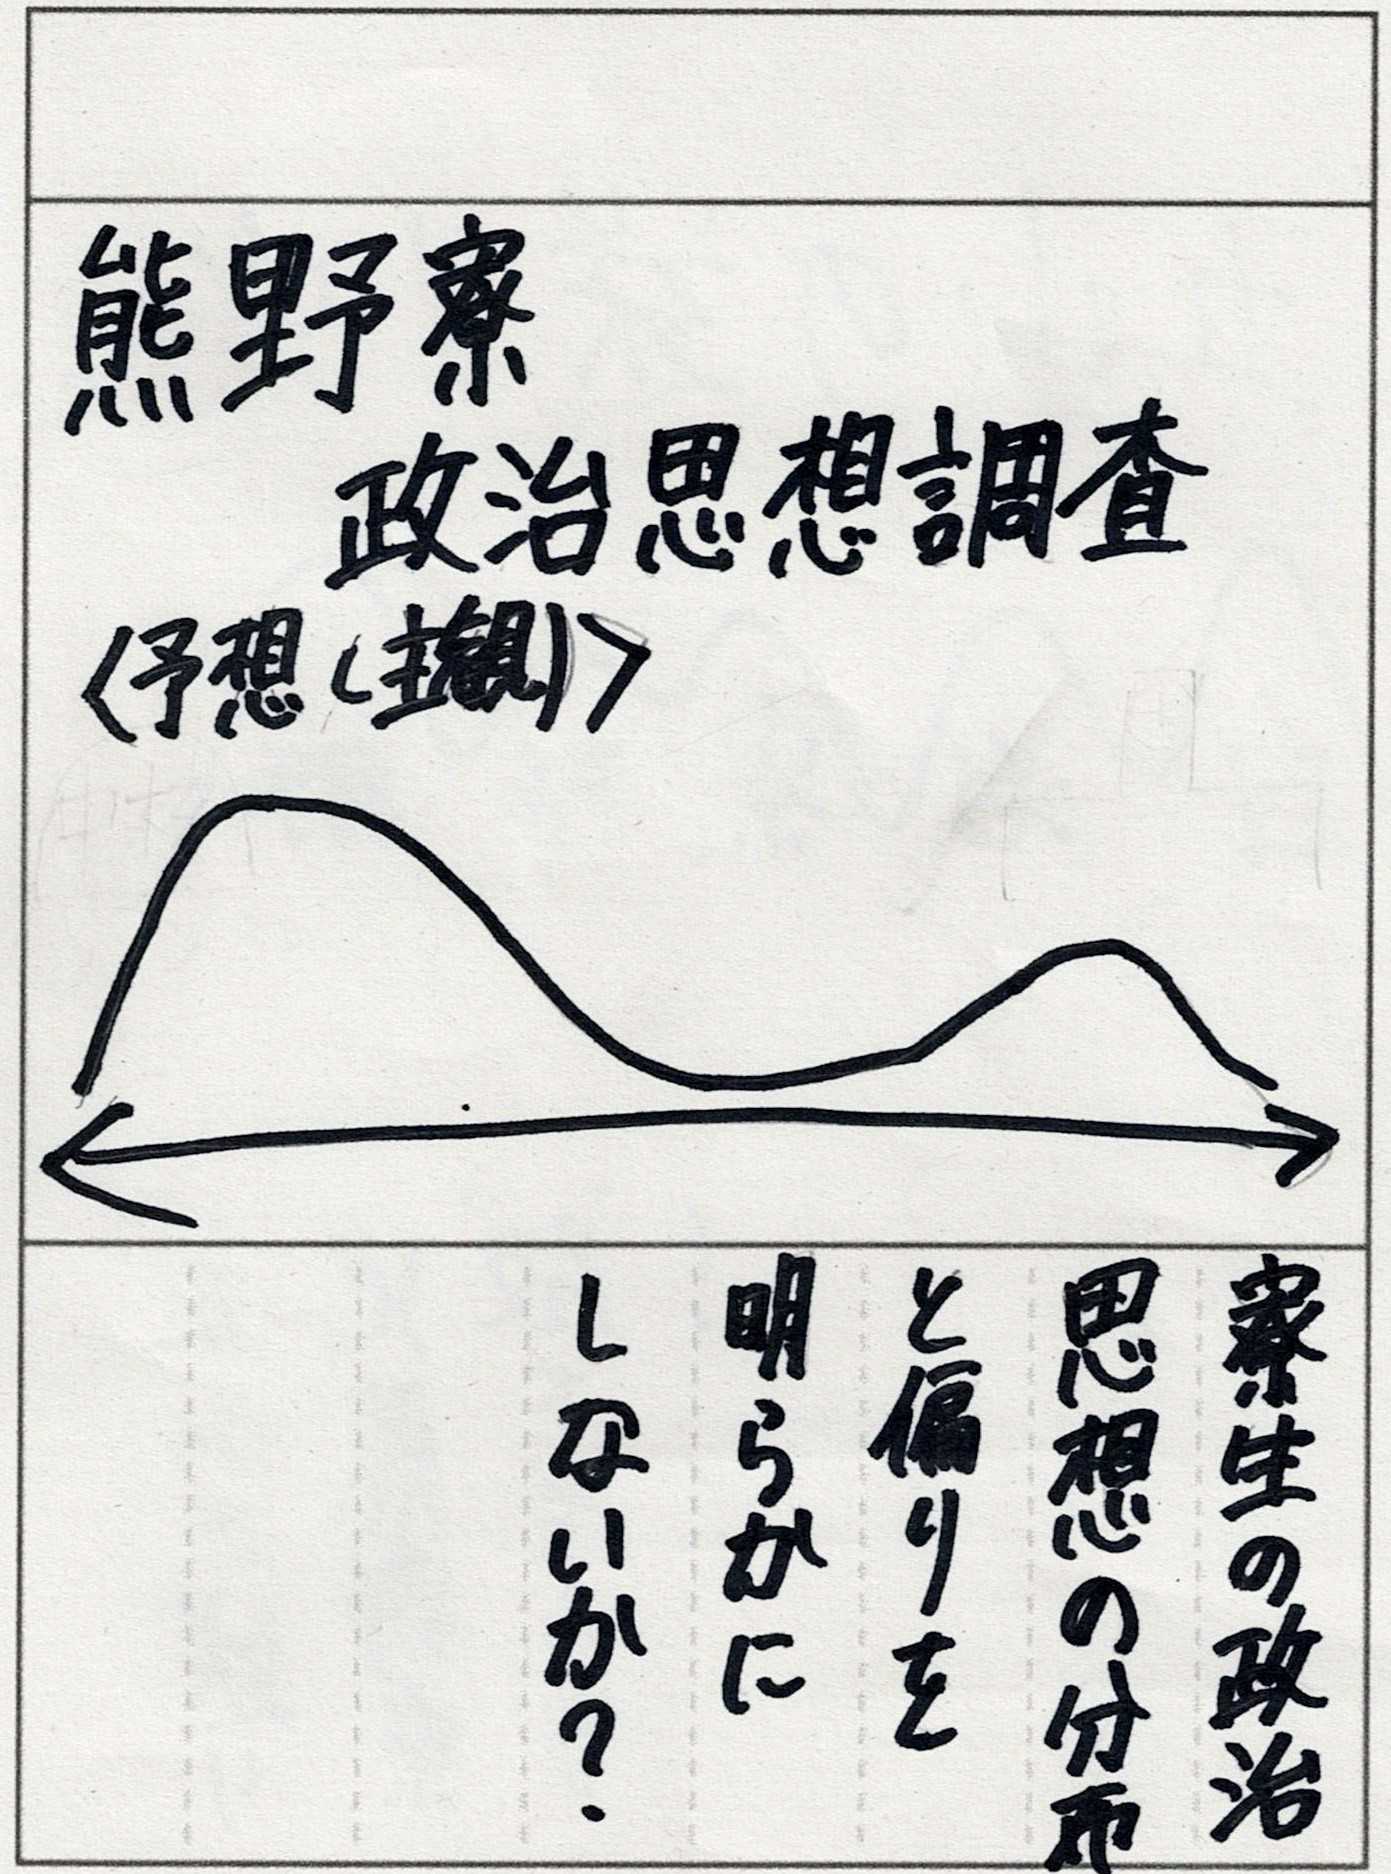 熊野寮
政治思想調査
〈予想(主観)〉
寮生の政治
思想の分布
と偏りを
明らかに
しないか?